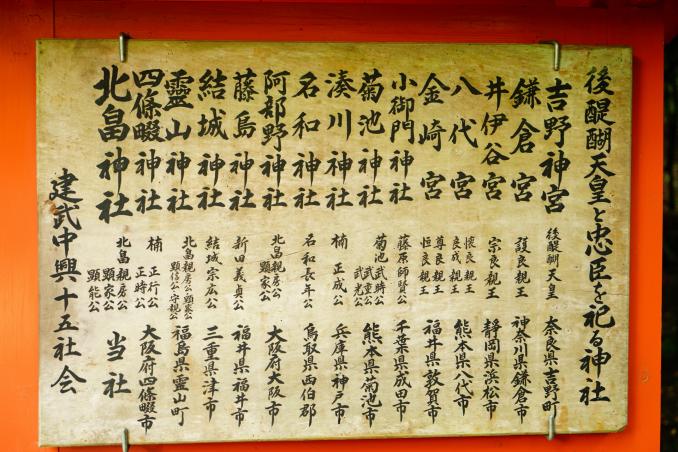 後醍醐天皇と忠臣を祀る神社
吉野神宮 後醍醐天皇 奈良県吉野町
鎌倉宮 護良親王 神奈川県鎌倉市
井伊谷宮 宗良親王 静岡県浜松市
八代宮 懐良親王 良成親王 熊本県八代市
金崎宮 尊良親王 恒良親王 福井県敦賀市
小御門神社 藤原師賢公 千葉県成田市
菊池神社 菊池武時公 武重公 武光公 熊本県菊池市
湊川神社 楠正成公 兵庫県神戸市
名和神社 名和長年公 鳥取県西伯郡
阿部野神社 北畠親房公 顕家公 大阪府大阪市
藤島神社 新田義貞公 福井県福井市
結城神社 結城宗広公 三重県津市
霊山神社 北畠親房公 顕家公 顕信公 守親公 福島県霊山町
四條畷神社 楠正行公 正時公 大阪府四條畷市
北畠神社 北畠親房公 顕家公 顕能公 当社
建武中興十五社会